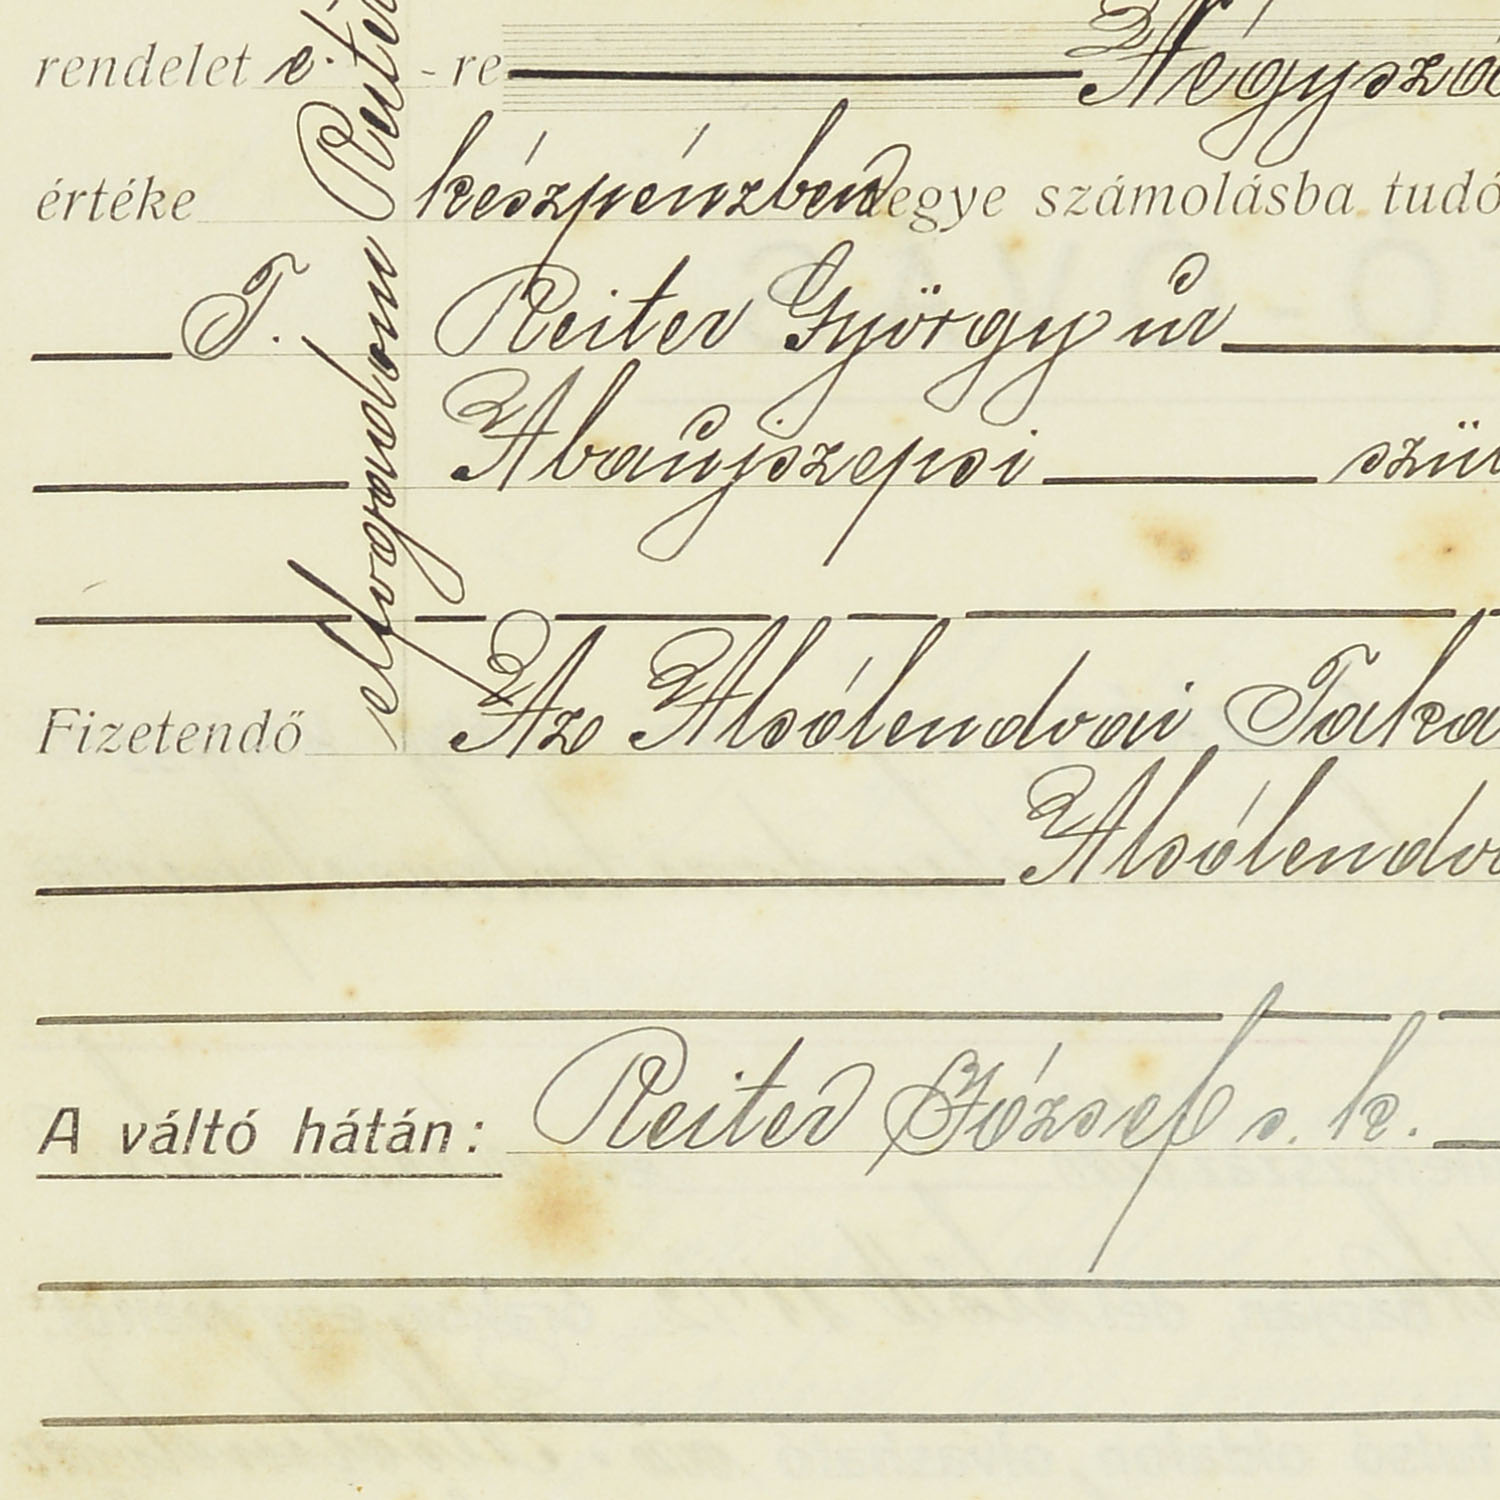 rendelet e. -re Négyszá
értéke készpénzben vegye számolásba tudó
T. Reiter György úr
Abaújszepsi szü
Fizetendő Az Alsólendvai Taka
Alsólendva
A váltó hátán: Reiter József s. k.
elfogadom Reite